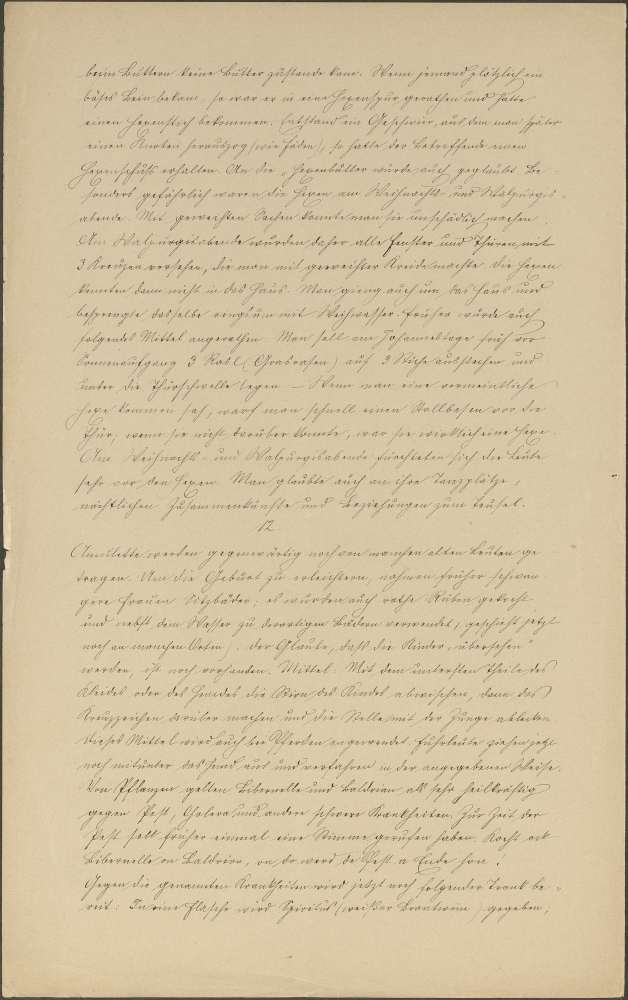 beim Buttern keine Butter zustande kam. Wenn jemand plötzlich ein
böses Bein bekam, so war er in eine Hexenspur gerathen und hatte
einen Hexenstich bekommen. Entstand ein Geschwür, aus dem man später
einen Knoten herauszog (wie Fäden), so hatte der Betreffende einen
Hexenschuß erhalten. An die „Hexenbutter wurde auch geglaubt. Be-
sonders gefährlich waren die Hexen am Weihnachts- und Walpurgis-
abende. Mit geweihten Sachen konnte man sie unschädlich machen.
Am Walpurgisabende wurden daher alle Fenster und Thüren mit
3 Kreuzen versehen, die man mit geweihter Kreide machte. Die Hexen
konnten dann nicht in das Haus. Man gieng auch um das Haus und
besprengte dasselbe ringsum mit Weihwasser. Früher wurde auch
folgendes Mittel angerathen: Man soll am Johannestage früh vor
Sonnenaufgang 3 (Grasrasen) auf 3 Stiche ausstechen und
unter die Thürschwelle legen. — Wenn man eine vermeintliche
Hexe kommen sah, warf man schnell einen Stallbesen vor die
Thür; wenn sie nicht darüber konnte, war sie wirklich eine Hexe.
Am Weihnachts- und Walpurgisabende fürchteten sich die Leute
sehr vor den Hexen. Man glaubte auch an ihre Tanzplätze,
nächtlichen Zusammenkünfte und Beziehungen zum Teufel.
12
Amulette werden gegenwärtig noch von manchen alten Leuten ge
tragen. Um die Geburt zu erleichtern, nahmen früher schwan
gere Frauen Sitzbäder; es wurden auch rothe Rüben gekocht
und nebst dem Wasser zu derartigen Bädern verwendet, (geschieht jetzt
noch an manchen Orten). Der Glaube, daß die Kinder „übersehen“
werden, ist noch vorhanden. Mittel: Mit dem untersten Theile des
Kleides oder des Hemdes die Stirn des Kindes abwischen, dann das
Kreuzzeichen darüber machen und die Stelle mit der Zunge ablecken.
Dieses Mittel wird auch bei Pferden angewendet. Fuhrleute ziehen jetzt
noch mitunter das Hemd aus und verfahren in der angegebenen Weise.
Von Pflanzen gelten Bibernelle und Baldrian als sehr heilkräftig
gegen Pest, Cholera und andere schwere Krankheiten. Zur Zeit der
Pest soll früher einmal eine Stimme gerufen haben: Kocht
Bibernelle on Baldrian, on werd de Pest a Ende hon!
Gegen die genannten Krankheiten wird jetzt noch folgender Trank be-
reit: In eine Flasche wird Spiritus (weißer Brantwein) gegeben;